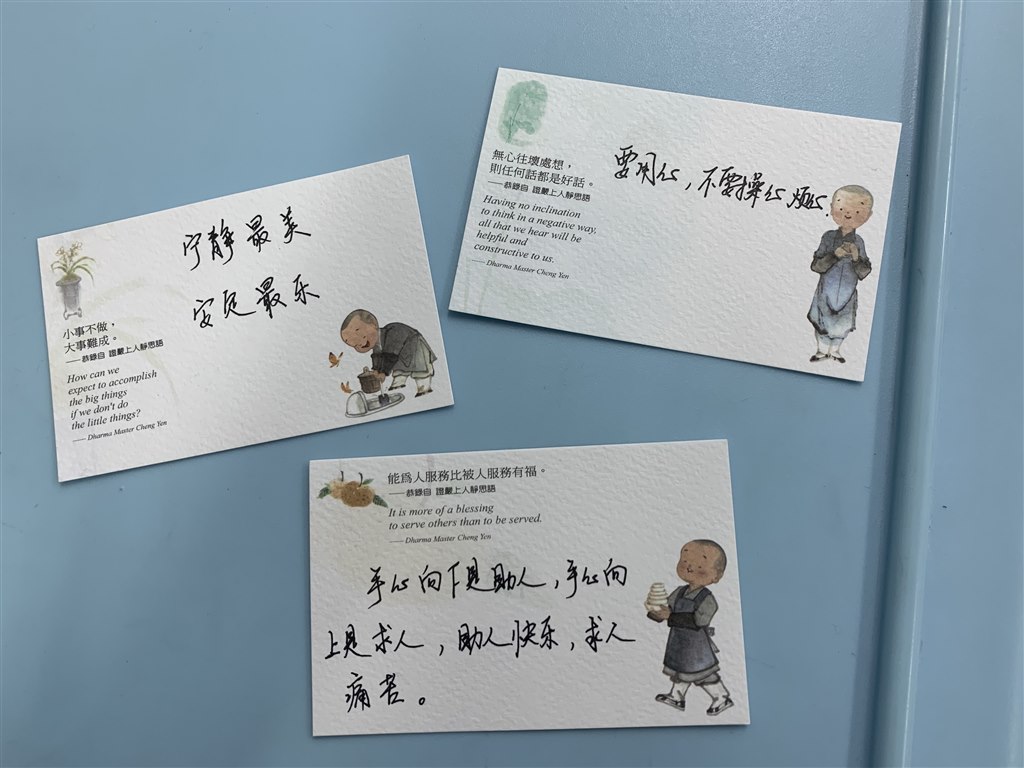 宁静最美
安定最乐
小事不做，
大事難成。
——恭錄自 證嚴上人靜思語
How can we
expect to accomplish
the big things
if we don't do
the little things?
—— Dharma Master Cheng Yen
無心往壞處想，
則任何話都是好話。
——恭錄自 證嚴上人靜思語
Having no inclination
to think in a negative way,
all that we hear will be
helpful and
constructive to us.
—— Dharma Master Cheng Yen
要用心，不要操心烦心.
能爲人服務比被人服務有福。
——恭錄自 證嚴上人靜思語
It is more of a blessing
to serve others than to be served.
—— Dharma Master Cheng Yen
手心向下是助人，手心向
上是求人，助人快乐，求人
痛苦。